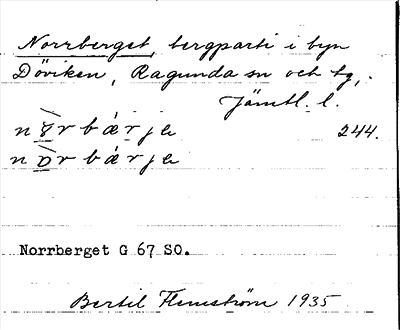 Norrberget, bergparti i byn
Döviken, Ragunda sn och tg,.
Jämtl. l.
n ò r b ǽ r j a 244.
n ò r b ǽ r j a
Norrberget G 67 SO.
Bertil Flemström 1935